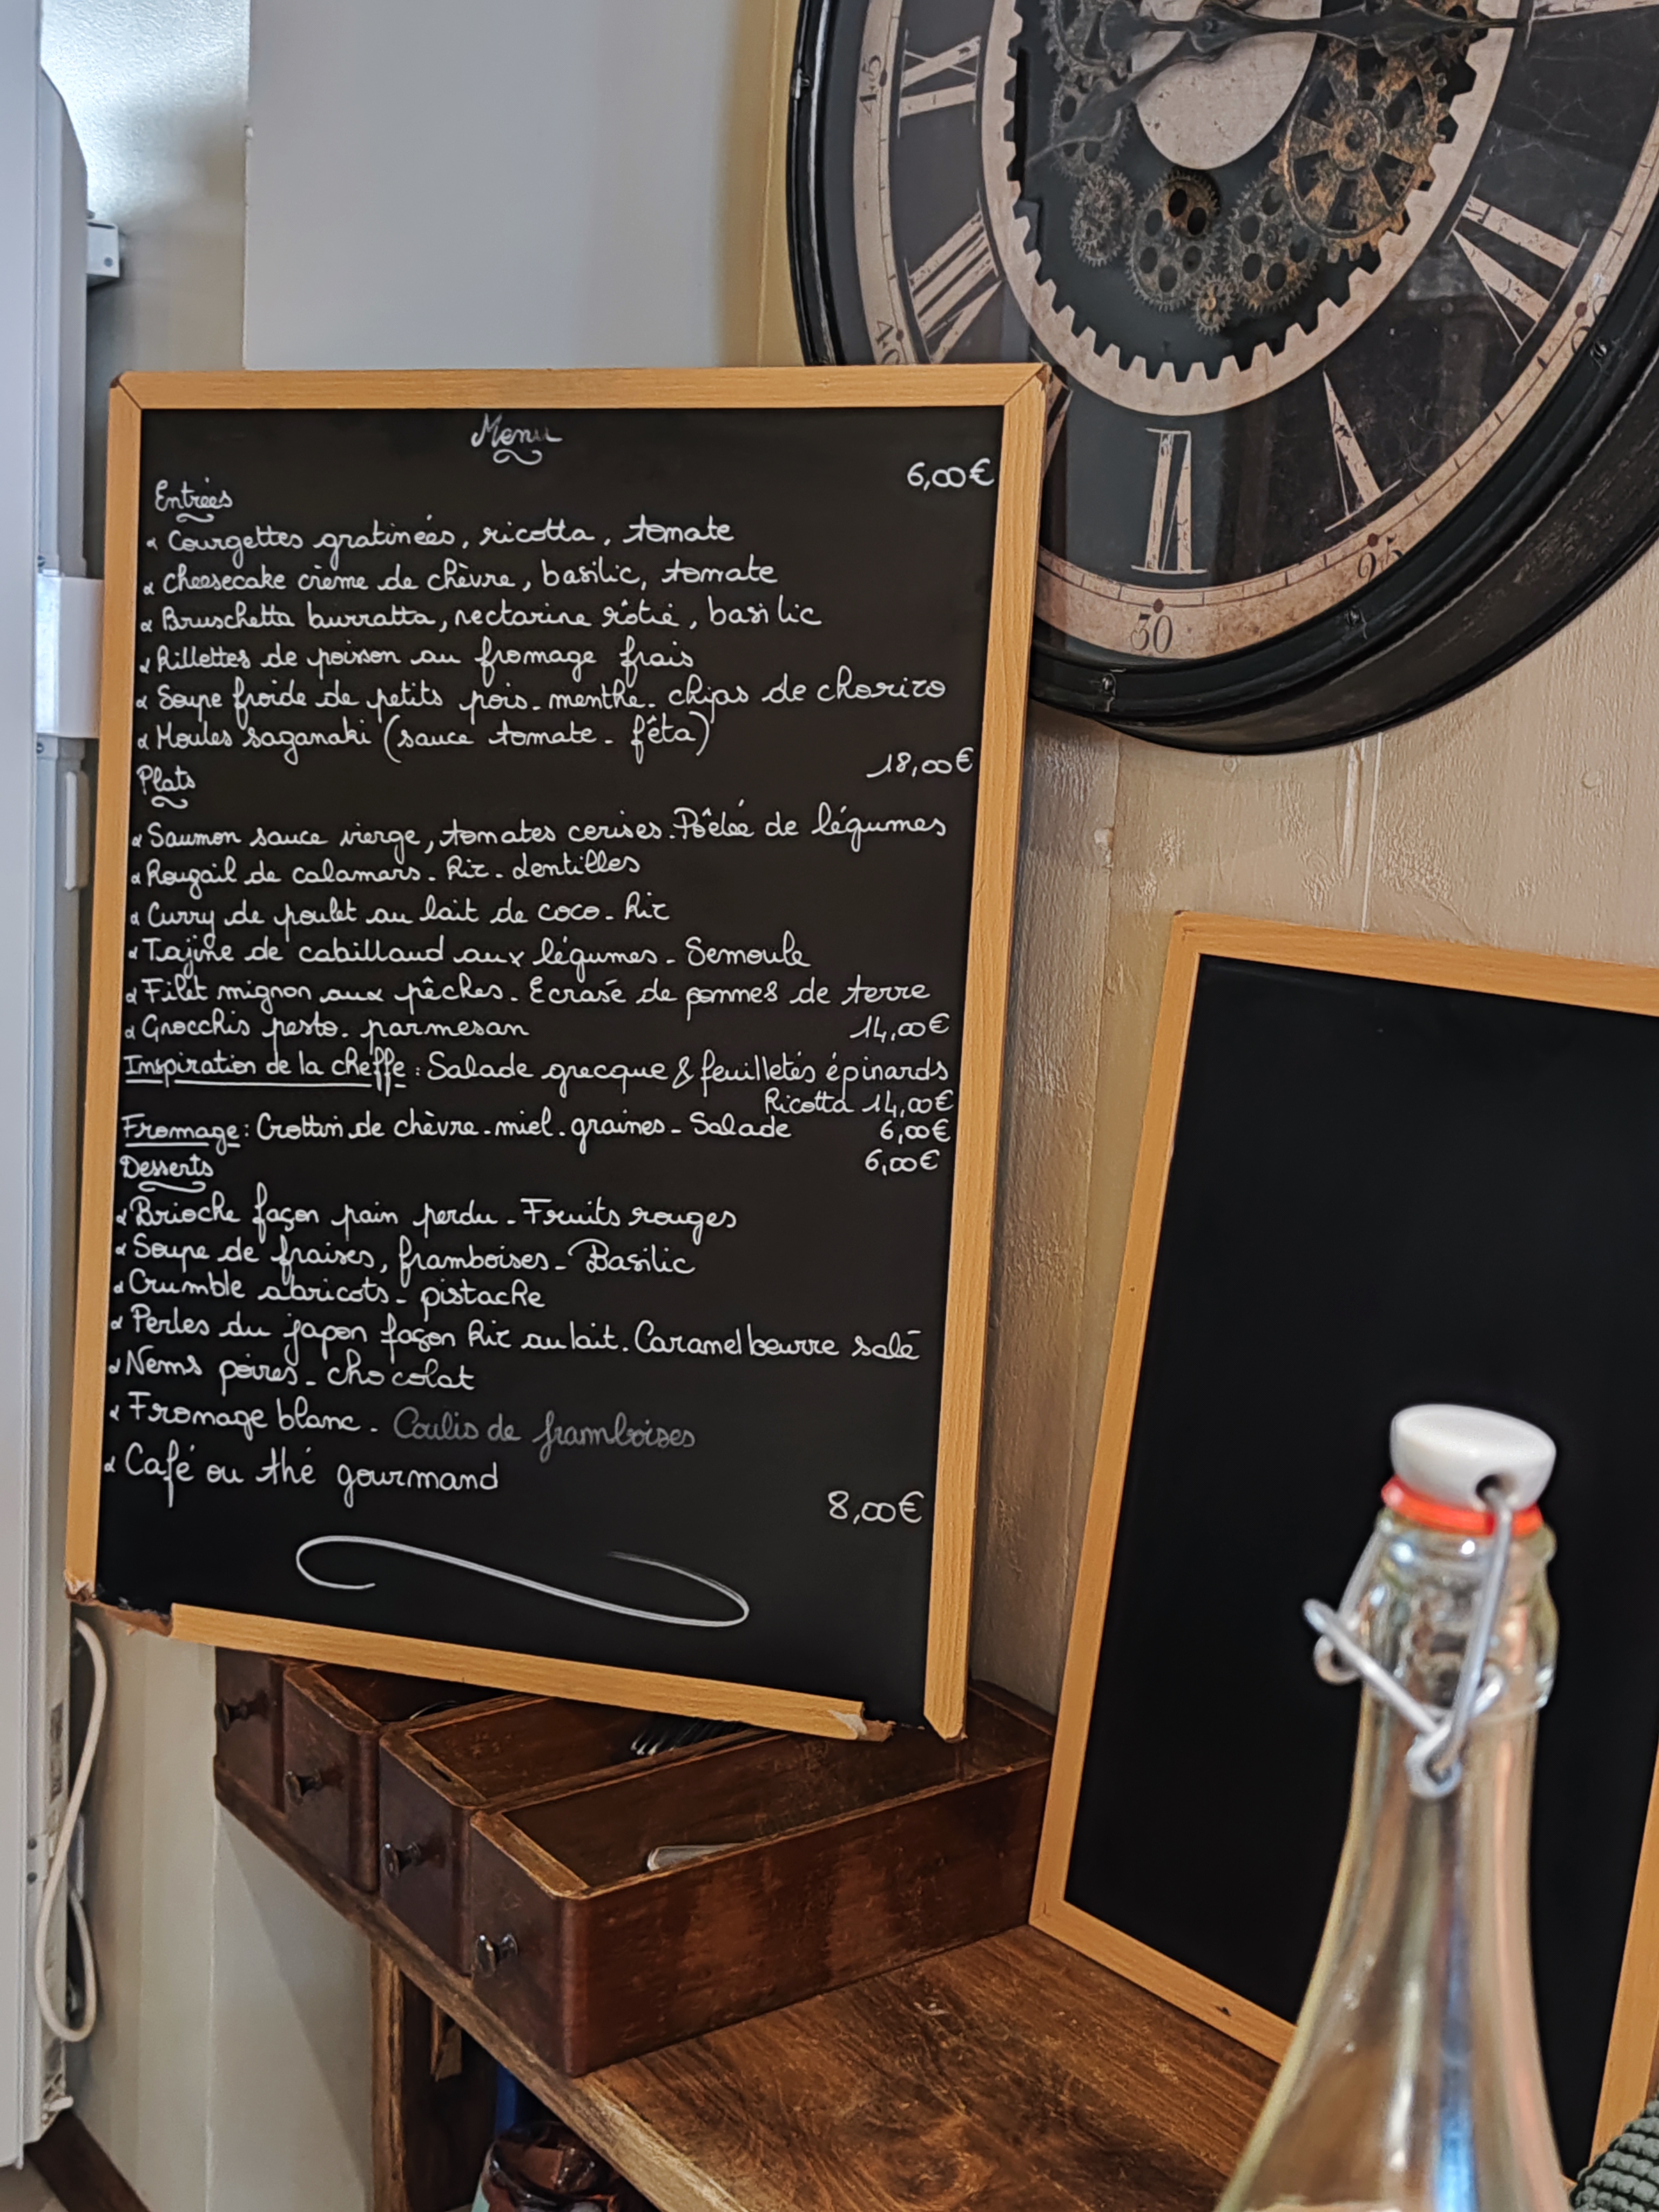 Menu
Entrées 6,00€
Courgettes gratinées, ricotta, tomate
Cheesecake crème de chèvre, basilic, tomate
Bruschetta burratta, nectarine rôtie, basilic
Rillettes de poisson au fromage frais
Soupe froide de petits pois - menthe - chips de chorizo
Moules saganaki (sauce tomate - fêta)
Plats 18,00€
Saumon sauce vierge, tomates cerises. Poêlée de légumes
Rougail de calamars - Riz - Lentilles
Curry de poulet au lait de coco - Riz
Tajine de cabillaud aux légumes - Semoule
Filet mignon aux pêches - Ecrasé de pommes de terre
Gnocchis pesto - parmesan 14,00€
Inspiration de la cheffe : Salade grecque & feuilletés épinards
Ricotta 14,00€
Fromage : Crottin de chèvre - miel - graines - Salade 6,00€
Desserts 6,00€
Brioche façon pain perdu - Fruits rouges
Soupe de fraises, framboises - Basilic
Crumble abricots - pistache
Perles du japon façon Riz au lait. Caramel beurre salé
Nems poires - chocolat
Fromage blanc - Coulis de framboises
Café ou thé gourmand
8,00€
45
IX
40
VIII
IIII
V
VI
25
30